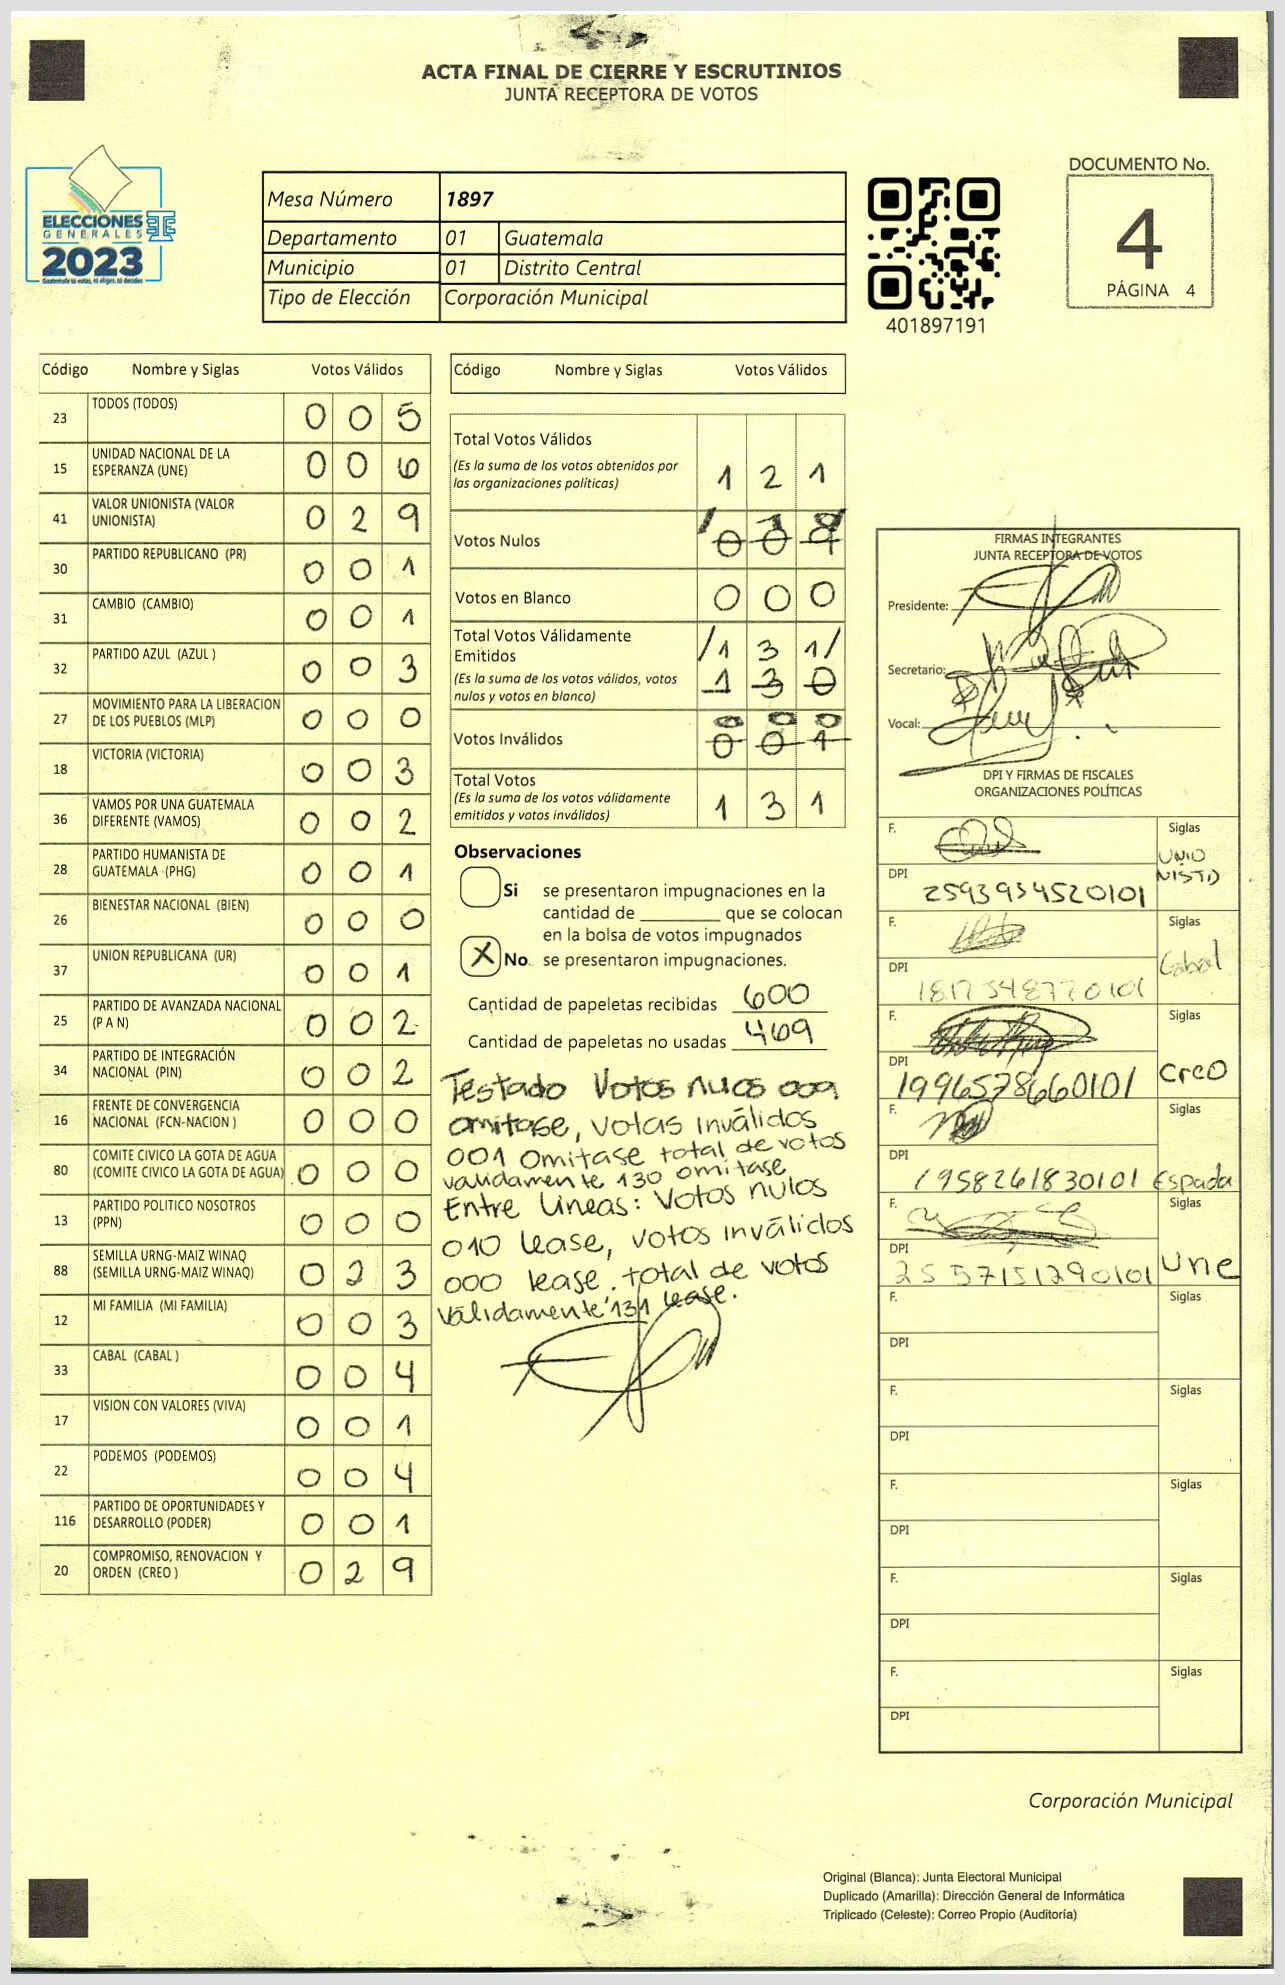 ACTA FINAL DE CIERRE Y ESCRUTINIOS
JUNTA RECEPTORA DE VOTOS
ELECCIONES
GENERALES
2023
Mesa Número 1897
Departamento 01 Guatemala
Municipio 01 Distrito Central
Tipo de Elección Corporación Municipal
401897191
DOCUMENTO No.
4
PÁGINA 4
Código Nombre y Siglas Votos Válidos
23 TODOS (TODOS) 0 0 5
15 UNIDAD NACIONAL DE LA ESPERANZA (UNE) 0 0 6
41 VALOR UNIONISTA (VALOR UNIONISTA) 0 2 9
30 PARTIDO REPUBLICANO (PR) 0 0 1
31 CAMBIO (CAMBIO) 0 0 1
32 PARTIDO AZUL (AZUL ) 0 0 3
27 MOVIMIENTO PARA LA LIBERACION DE LOS PUEBLOS (MLP) 0 0 0
18 VICTORIA (VICTORIA) 0 0 3
36 VAMOS POR UNA GUATEMALA DIFERENTE (VAMOS) 0 0 2
28 PARTIDO HUMANISTA DE GUATEMALA (PHG) 0 0 1
26 BIENESTAR NACIONAL (BIEN) 0 0 0
37 UNION REPUBLICANA (UR) 0 0 1
25 PARTIDO DE AVANZADA NACIONAL (P A N) 0 0 2
34 PARTIDO DE INTEGRACIÓN NACIONAL (PIN) 0 0 2
16 FRENTE DE CONVERGENCIA NACIONAL (FCN-NACION ) 0 0 0
80 COMITE CIVICO LA GOTA DE AGUA (COMITE CIVICO LA GOTA DE AGUA) 0 0 0
13 PARTIDO POLITICO NOSOTROS (PPN) 0 0 0
88 SEMILLA URNG-MAIZ WINAQ (SEMILLA URNG-MAIZ WINAQ) 0 2 3
12 MI FAMILIA (MI FAMILIA) 0 0 3
33 CABAL (CABAL ) 0 0 4
17 VISION CON VALORES (VIVA) 0 0 1
22 PODEMOS (PODEMOS) 0 0 4
116 PARTIDO DE OPORTUNIDADES Y DESARROLLO (PODER) 0 0 1
20 COMPROMISO, RENOVACION Y ORDEN (CREO ) 0 2 9
Código Nombre y Siglas Votos Válidos
Total Votos Válidos 1 2 1
(Es la suma de los votos obtenidos por
las organizaciones políticas)
Votos Nulos 0 0 9
Votos en Blanco 0 0 0
Total Votos Válidamente /1 3 1/
Emitidos
(Es la suma de los votos válidos, votos 1 3 0
nulos y votos en blanco)
0 0 0
Votos Inválidos 0 0 1
Total Votos
(Es la suma de los votos válidamente 1 3 1
emitidos y votos inválidos)
Observaciones
Si se presentaron impugnaciones en la
cantidad de ________ que se colocan
en la bolsa de votos impugnados
X No se presentaron impugnaciones.
Cantidad de papeletas recibidas 600
Cantidad de papeletas no usadas 469
Testado Votos nulos 009
omitase, votos inválidos
001 Omitase total de votos
validamente 130 omitase
Entre lineas: Votos nulos
010 lease, votos inválidos
000 lease. total de votos
válidamente 131 lease.
FIRMAS INTEGRANTES
JUNTA RECEPTORA DE VOTOS
Presidente:
Secretario:
Vocal:
DPI Y FIRMAS DE FISCALES
ORGANIZACIONES POLÍTICAS
F. Siglas
UNIO
NISTA
DPI 2593934520101
F. Siglas
Cabal
DPI 1817548770101
F. Siglas
Creo
DPI 1996578660101
F. Siglas
DPI 1958261830101 Espada
F. Siglas
Une
DPI 2557151290101
F. Siglas
DPI
F. Siglas
DPI
F. Siglas
DPI
F. Siglas
DPI
F. Siglas
DPI
Corporación Municipal
Original (Blanca): Junta Electoral Municipal
Duplicado (Amarilla): Dirección General de Informática
Triplicado (Celeste): Correo Propio (Auditoría)